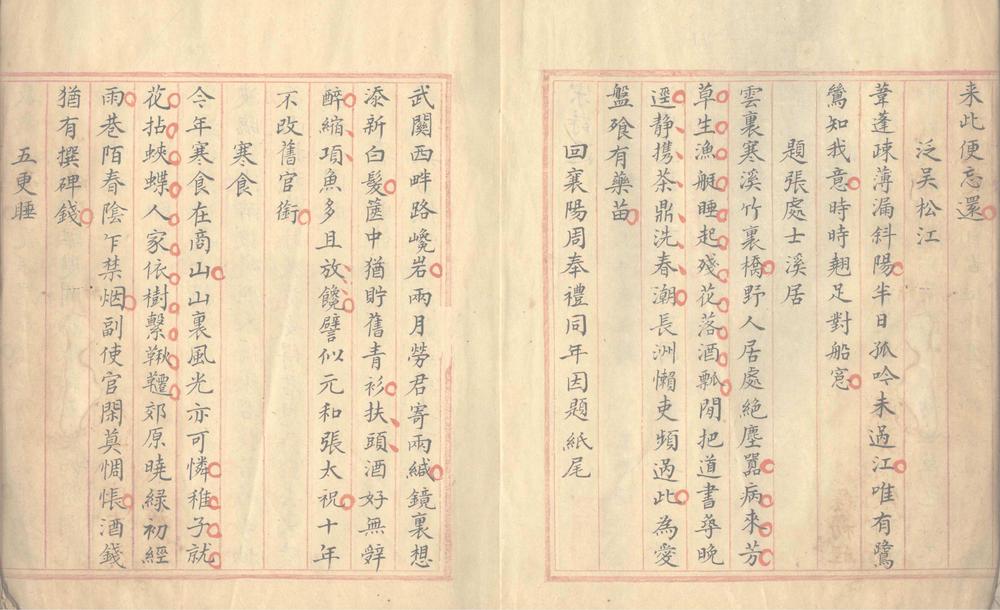 來此便忘還
泛吴松江
葦蓬疎薄漏斜陽半日孤吟未過江唯有鷺
鷥知我意時時翹足對船窓
題張處士溪居
雲裏寒溪竹裏橋野人居處絶塵囂病來芳
草生漁艇睡起殘花落酒瓢閒把道書尋晚
逕静攜茶鼎洗春潮長洲懶吏頻過此為愛
盤飱有藥苗
回襄陽周奉禮同年因題紙尾
武關西畔路巉岩兩月勞君寄兩緘鏡裏想
添新白髮篋中猶貯舊青衫扶頭酒好無辤
醉縮項魚多且放饞譬似元和張太祝十年
不改舊官銜
寒食
今年寒食在商山山裏風光亦可憐稚子就
花拈蛺蝶人家依樹繫鞦韆郊原曉緑初經
雨巷陌春陰乍禁烟副使官閑莫惆悵酒錢
猶有撰碑錢
五更睡